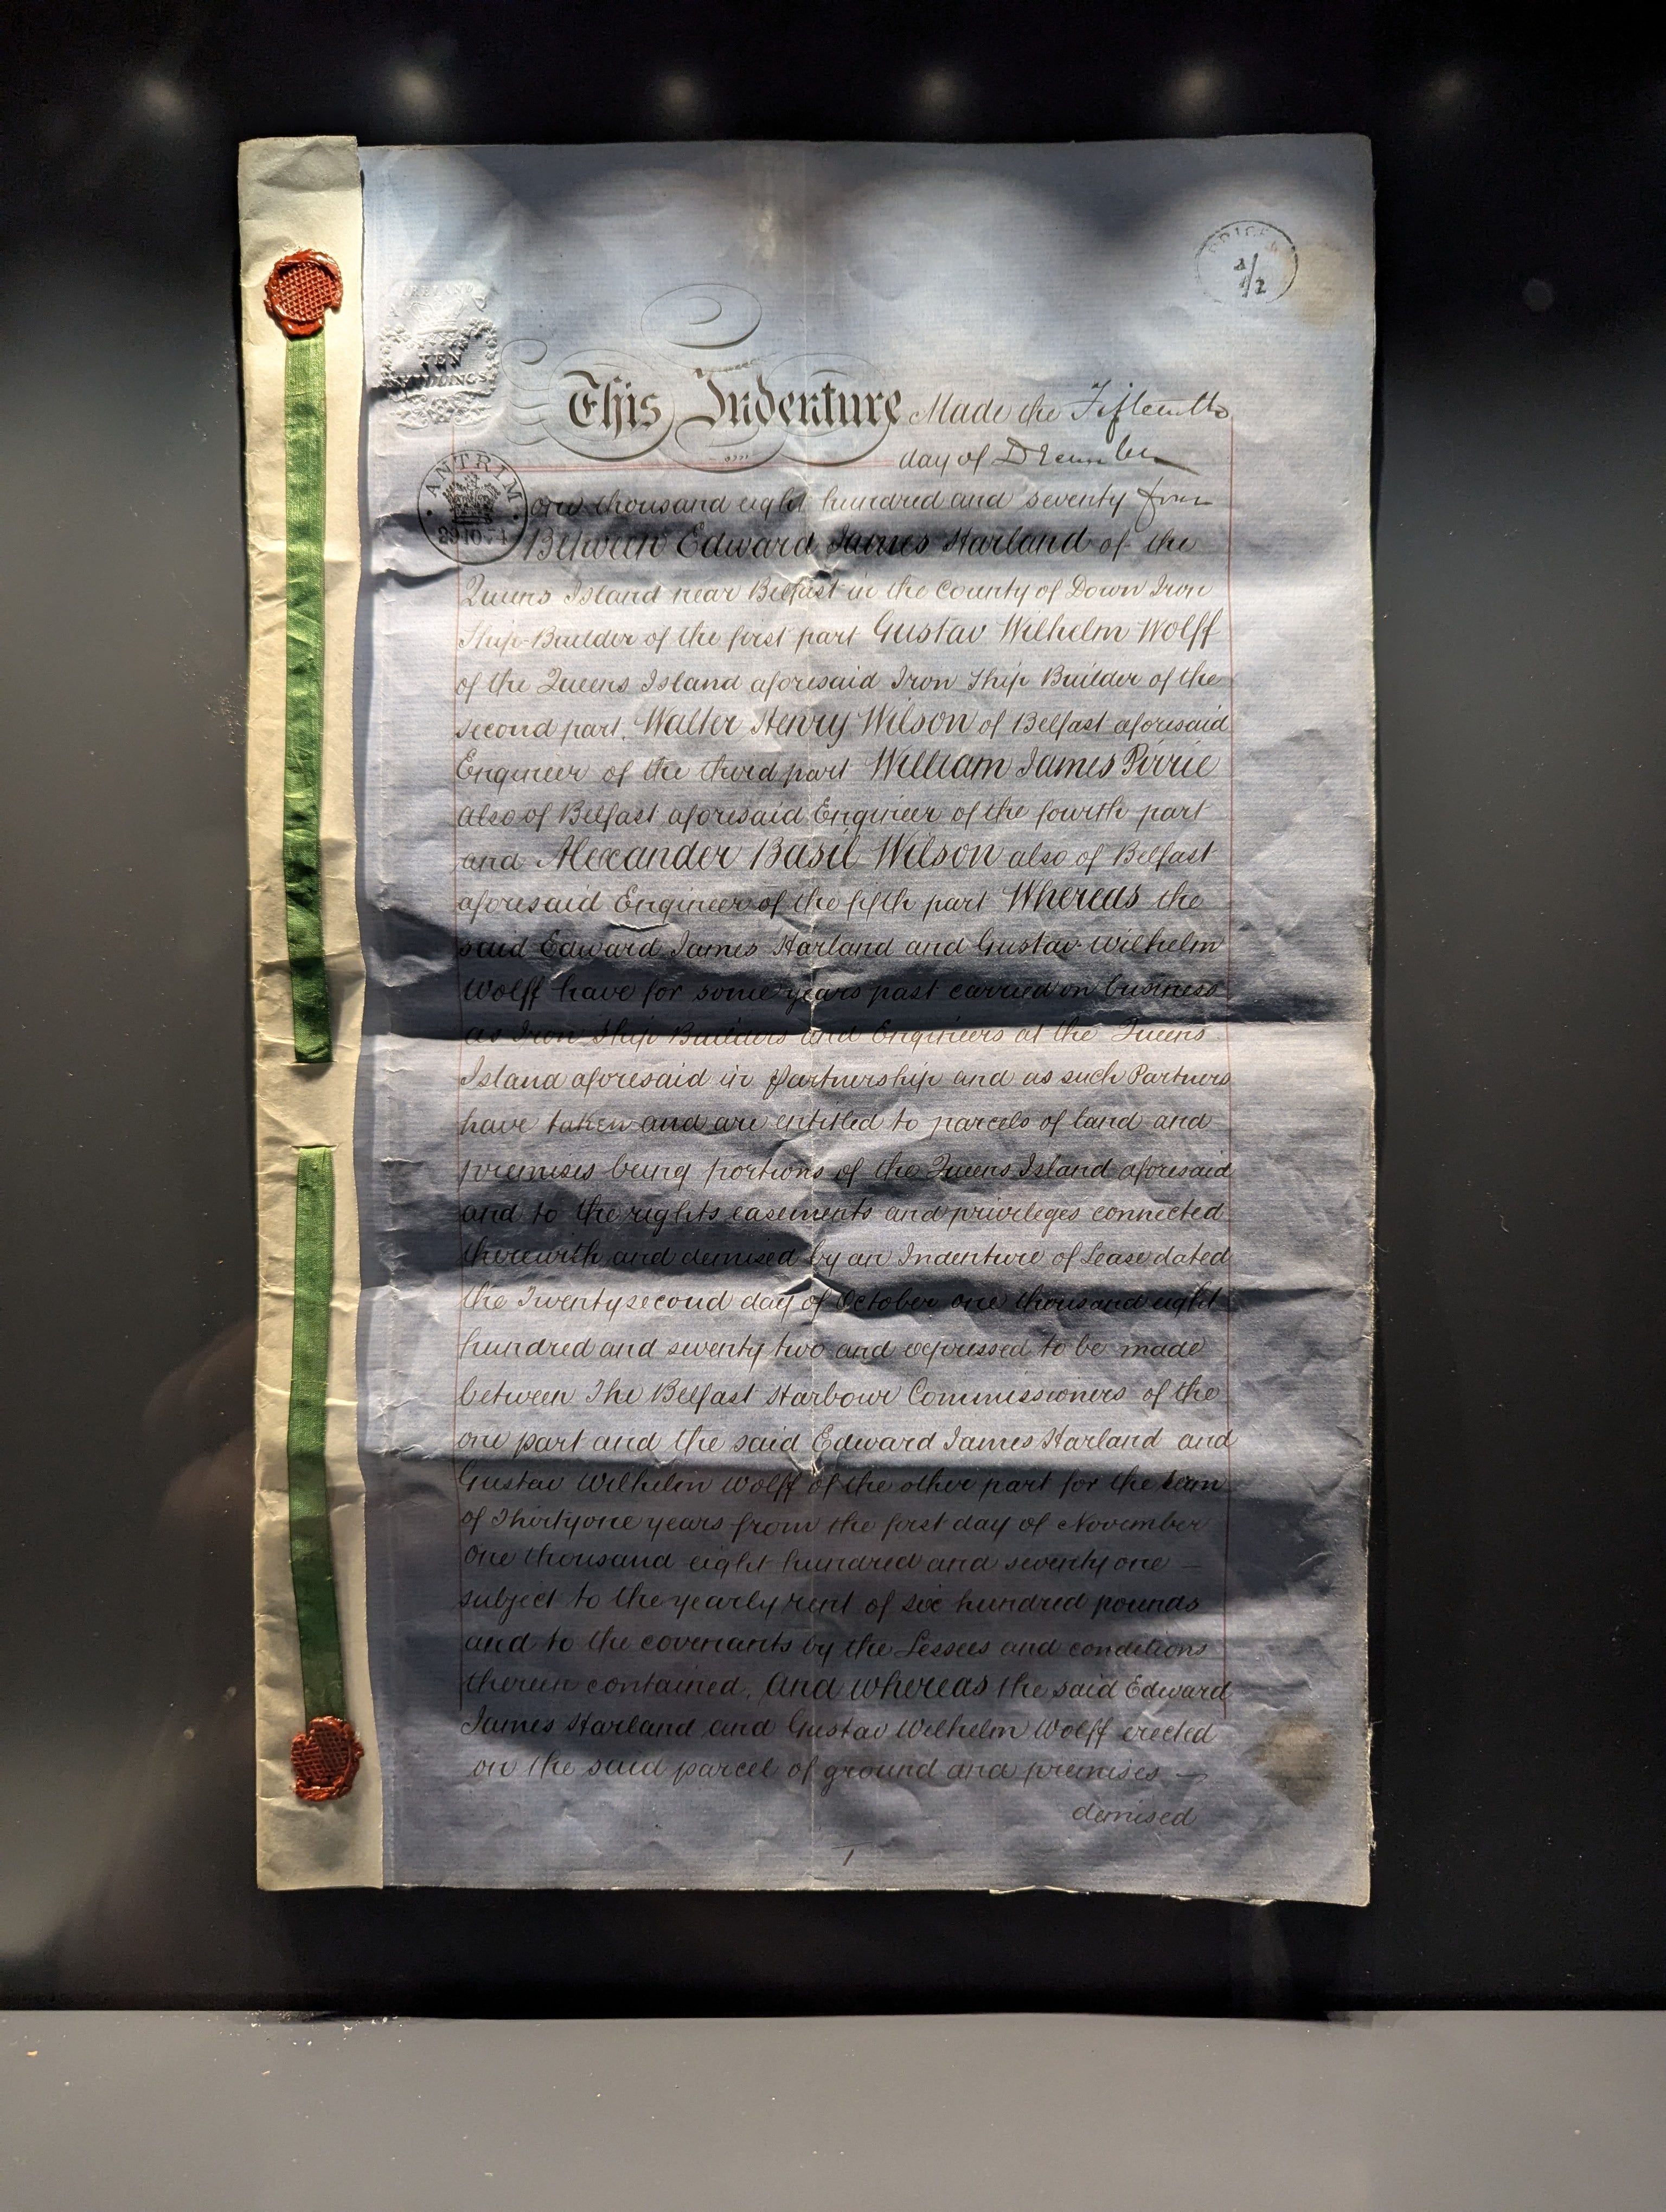 IRELAND
TEN
SHILLINGS
PRICE
2/
1/2
This Indenture Made the Fifteenth
day of December
ANTRIM
29.10.74
one thousand eight hundred and seventy four
Between Edward James Harland of the
Queens Island near Belfast in the County of Down Iron
Ship-Builder of the first part Gustav Wilhelm Wolff
of the Queens Island aforesaid Iron Ship Builder of the
second part, Walter Henry Wilson of Belfast aforesaid
Engineer of the third part William James Pirrie
also of Belfast aforesaid Engineer of the fourth part
and Alexander Basil Wilson also of Belfast
aforesaid Engineer of the fifth part Whereas the
said Edward James Harland and Gustav Wilhelm
Wolff have for some years past carried on business
as Iron Ship Builders and Engineers at the Queens
Island aforesaid in partnership and as such Partners
have taken and are entitled to parcels of land and
premises being portions of the Queens Island aforesaid
and to the rights easements and privileges connected
therewith and demised by an Indenture of Lease dated
the Twentysecond day of October one thousand eight
hundred and seventy two and expressed to be made
between The Belfast Harbour Commissioners of the
one part and the said Edward James Harland and
Gustav Wilhelm Wolff of the other part for the term
of Thirtyone years from the first day of November
One thousand eight hundred and seventy one —
subject to the yearly rent of six hundred pounds
and to the covenants by the Lessees and conditions
therein contained. And whereas the said Edward
James Harland and Gustav Wilhelm Wolff erected
on the said parcel of ground and premises —
demised
1